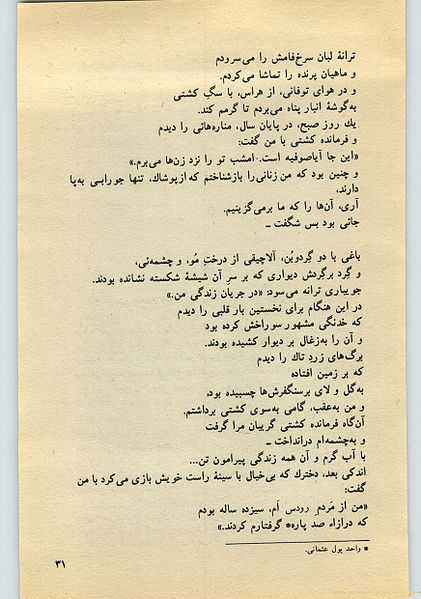 ترانهٔ لبان سرخ‌فامش را می‌سرودم
و ماهیان پرنده را تماشا می‌کردم.
و در هوای توفانی، از هراس، با سگِ کشتی
به‌گوشهٔ انبار پناه می‌بردم تا گرمم کند.
یك روز صبح، در پایان سال، مناره‌هائی را دیدم
و فرمانده کشتی با من گفت:
«این جا آیاصوفیه است. امشب تو را نزد زن‌ها می‌برم.»
و چنین بود که من زنانی را بازشناختم که از پوشاك، تنها جورابی به‌پا
دارند،
آری، آن‌ها را که ما برمی‌گزینیم.
جائی بود بس شگفت ــ
باغی با دو گردوبُن، آلاچیقی از درختِ مُو، و چشمه‌ئی،
و گِرد برگردش دیواری که بر سرِ آن شیشهٔ شکسته نشانده بودند.
جویباری ترانه می‌سود: «در جریان زندگی من.»
در این هنگام برای نخستین بار قلبی را دیدم
که خدنگی مشهور سوراخش کرده بود
و آن را به‌زغال بر دیوار کشیده بودند.
برگ‌های زردِ تاك را دیدم
که بر زمین افتاده
به‌گل و لای برسنگفرش‌ها چسبیده بود،
و من به‌عقب، گامی به‌سوی کشتی برداشتم.
آن‌گاه فرمانده کشتی گریبان مرا گرفت
و به‌چشمه‌ام درانداخت ــ
با آب گرم و آن همه زندگی پیرامون تن...
اندکی بعد، دخترك که بی‌خیال با سینهٔ راست خویش بازی می‌کرد با من
گفت:
«من از مَردمِ رودس اَم، سیزده ساله بودم
که درازاء صد پاره* گرفتارم کردند.»
* واحد پول عثمانی.
۳۱